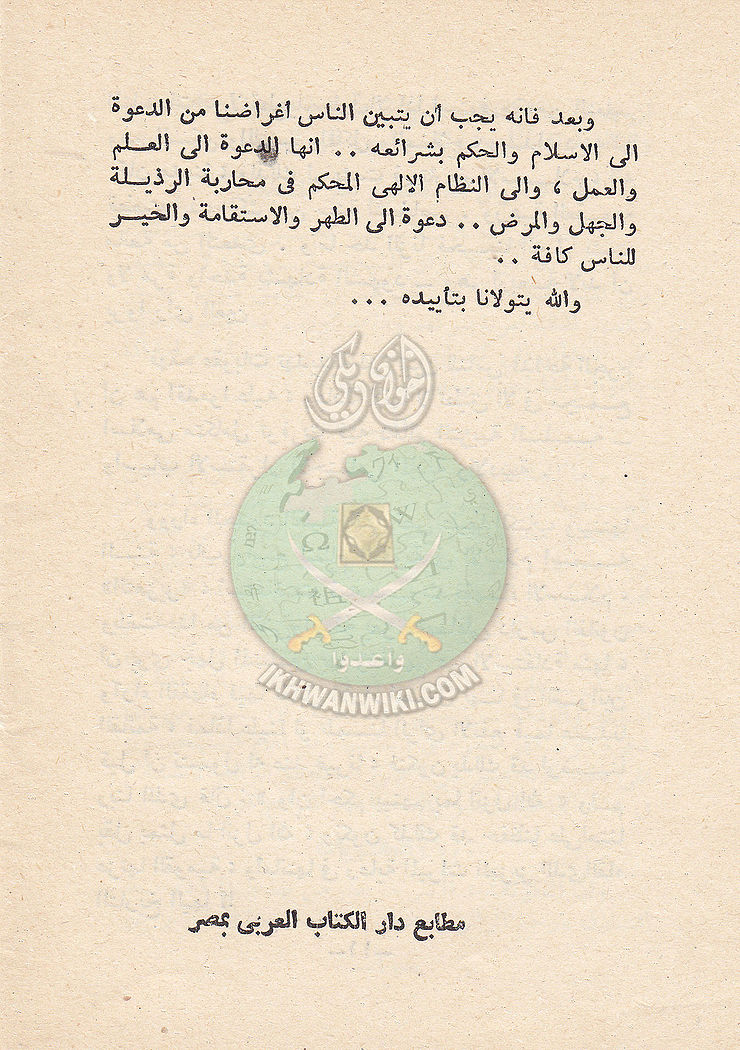 وبعد فانه يجب أن يتبين الناس أغراضنا من الدعوة
الى الاسلام والحكم بشرائعه .. انها الدعوة الى العلم
والعمل ، والى النظام الالهى المحكم فى محاربة الرذيلة
والجهل والمرض .. دعوة الى الطهر والاستقامة والخير
للناس كافة ..
والله يتولانا بتأييده ...
إخوان ويكي
Ω
W
祖
واعدوا
IKHWANWIKI.COM
مطابع دار الكتاب العربى بمصر